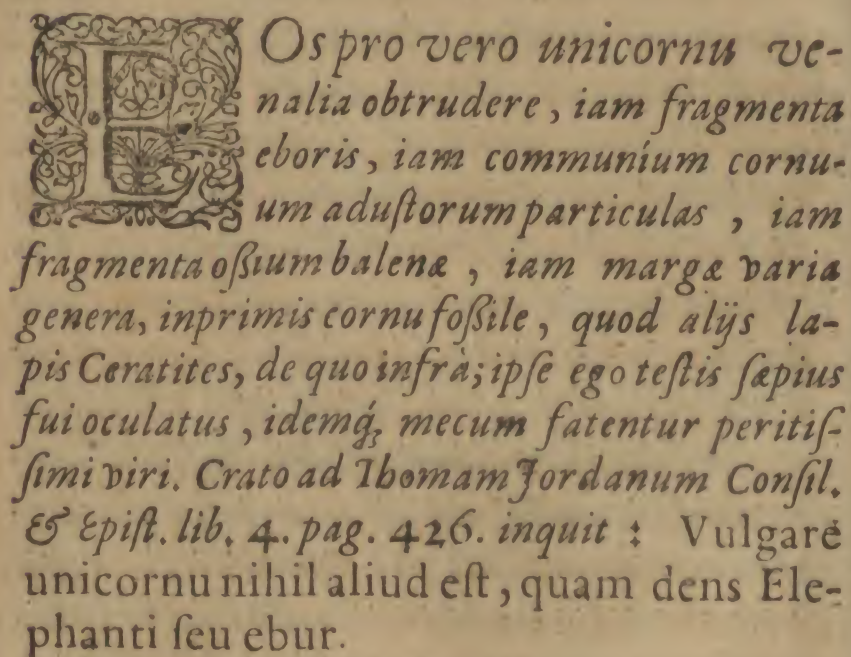 EOs pro vero unicornu ve-
nalia obtrudere, iam fragmenta
eboris, iam communium cornu-
um adustorum particulas, iam
fragmenta oßium balenæ, iam margæ varia
genera, inprimis cornu foßile, quod alijs la-
pis Ceratites, de quo infrà; ipse ego testis sæpius
fui oculatus, idemq́; mecum fatentur peritis-
simi viri. Crato ad Thomam Jordanum Consil.
& Epist. lib. 4. pag. 426. inquit : Vulgare
unicornu nihil aliud est, quam dens Ele-
phanti seu ebur.